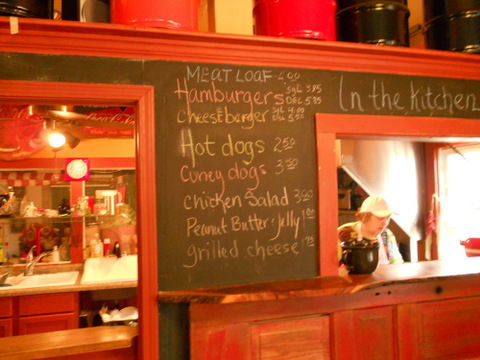 MEAT LOAF 4.00
Hamburgers SgL 3.85
DbL 5.35
cheeseburger SgL 4.00
DbL 5.50
Hot dogs 2.50
Coney dogs 3.50
chicken Salad 3.00
Peanut Butter & Jelly 1.00
grilled cheese 1.75
In the Kitchen